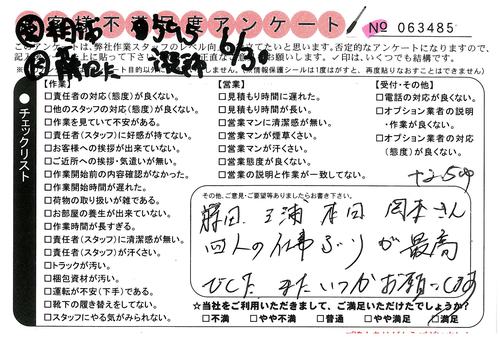 お客様不満足度アンケート
№ 063485
このアンケートは、弊社作業スタッフのレベル向上
否定的なアンケートになりますので、
✓印は、いくつでも結構です。
【作業】
□責任者の対応(態度)が良くない。
□他のスタッフの対応(態度)が良くない。
□作業を見ていて不安がある。
□責任者(スタッフ)に好感が持てない。
□お客様への挨拶が出来ていない。
□ご近所への挨拶・気遣いが無い。
□作業開始前の内容確認がなかった。
□作業開始時間が遅れた。
□荷物の取り扱いが雑である。
□お部屋の養生が出来ていない。
□作業時間が長すぎる。
□責任者(スタッフ)に清潔感が無い。
□責任者(スタッフ)が汗くさい。
□トラックが汚い。
□梱包資材が汚い。
□運転が不安(下手)である。
□靴下の履き替えをしてない。
□スタッフにやる気がみられない。
【営業】
□見積り時間に遅れた。
□見積もり時間が長い。
□営業マンに清潔感が無い。
□営業マンが煙草くさい。
□営業マンが汗くさい。
□営業態度が良くない。
□営業の説明と作業が一致してない。
【受付・その他】
□電話の対応が良くない。
□オプション業者の説明
・作業が良くない。
□オプション業者の対応
(態度)が良くない。
●チェックリスト
その他、ご意見・ご要望等ありましたらお書き下さい。
三浦 本田 岡本さん
四人の仕事ぶりが最高
でした またいつかお願いします
☆当社をご利用いただきまして、ご満足いただけたでしょうか?
□不満 □やや不満 □普通 □やや満足 □満足